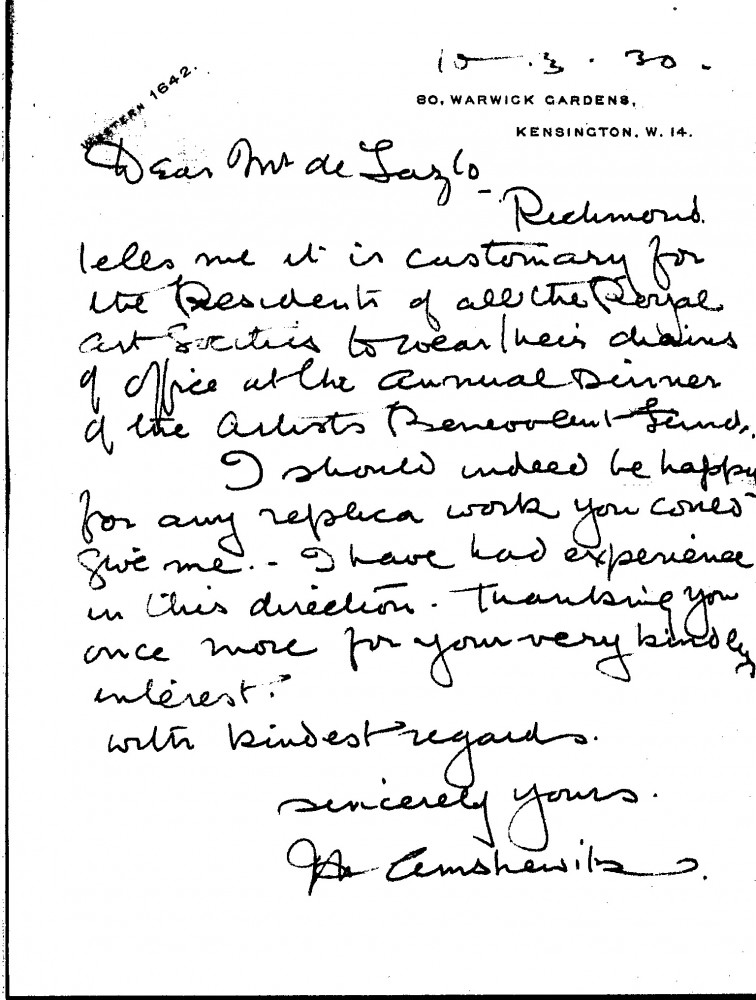 10-.3.30.
WESTERN 1642.
80, WARWICK GARDENS,
KENSINGTON, W. 14.
Dear Mr de Lazlo -
Richmond
tells me it is customary for
the Presidents of all the Royal
Art Societies to wear their chains
of office at the Annual Dinner
of the Artists Benevolent Fund.
I should indeed be happy
for any replica work you could
give me. - I have had experience
in this direction. Thanking you
once more for your very kindly
interest.
with kindest regards.
sincerely yours.
JH Amshewitz.